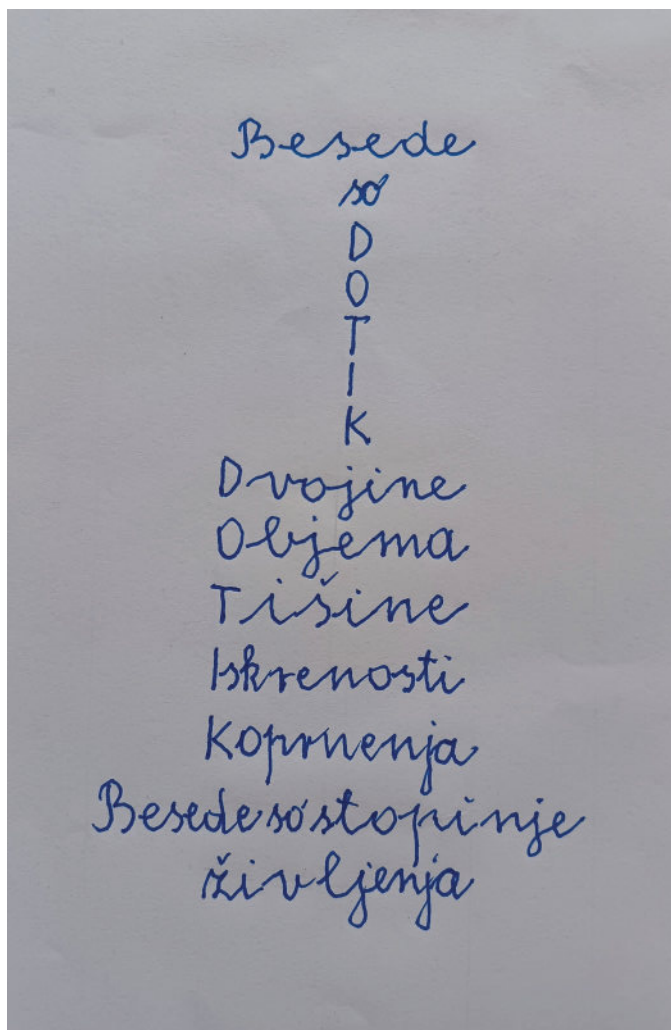 Besede
so
D
O
T
I
K
Dvojine
Objema
Tišine
Iskrenosti
Koprnenja
Besede so stopinje
življenja